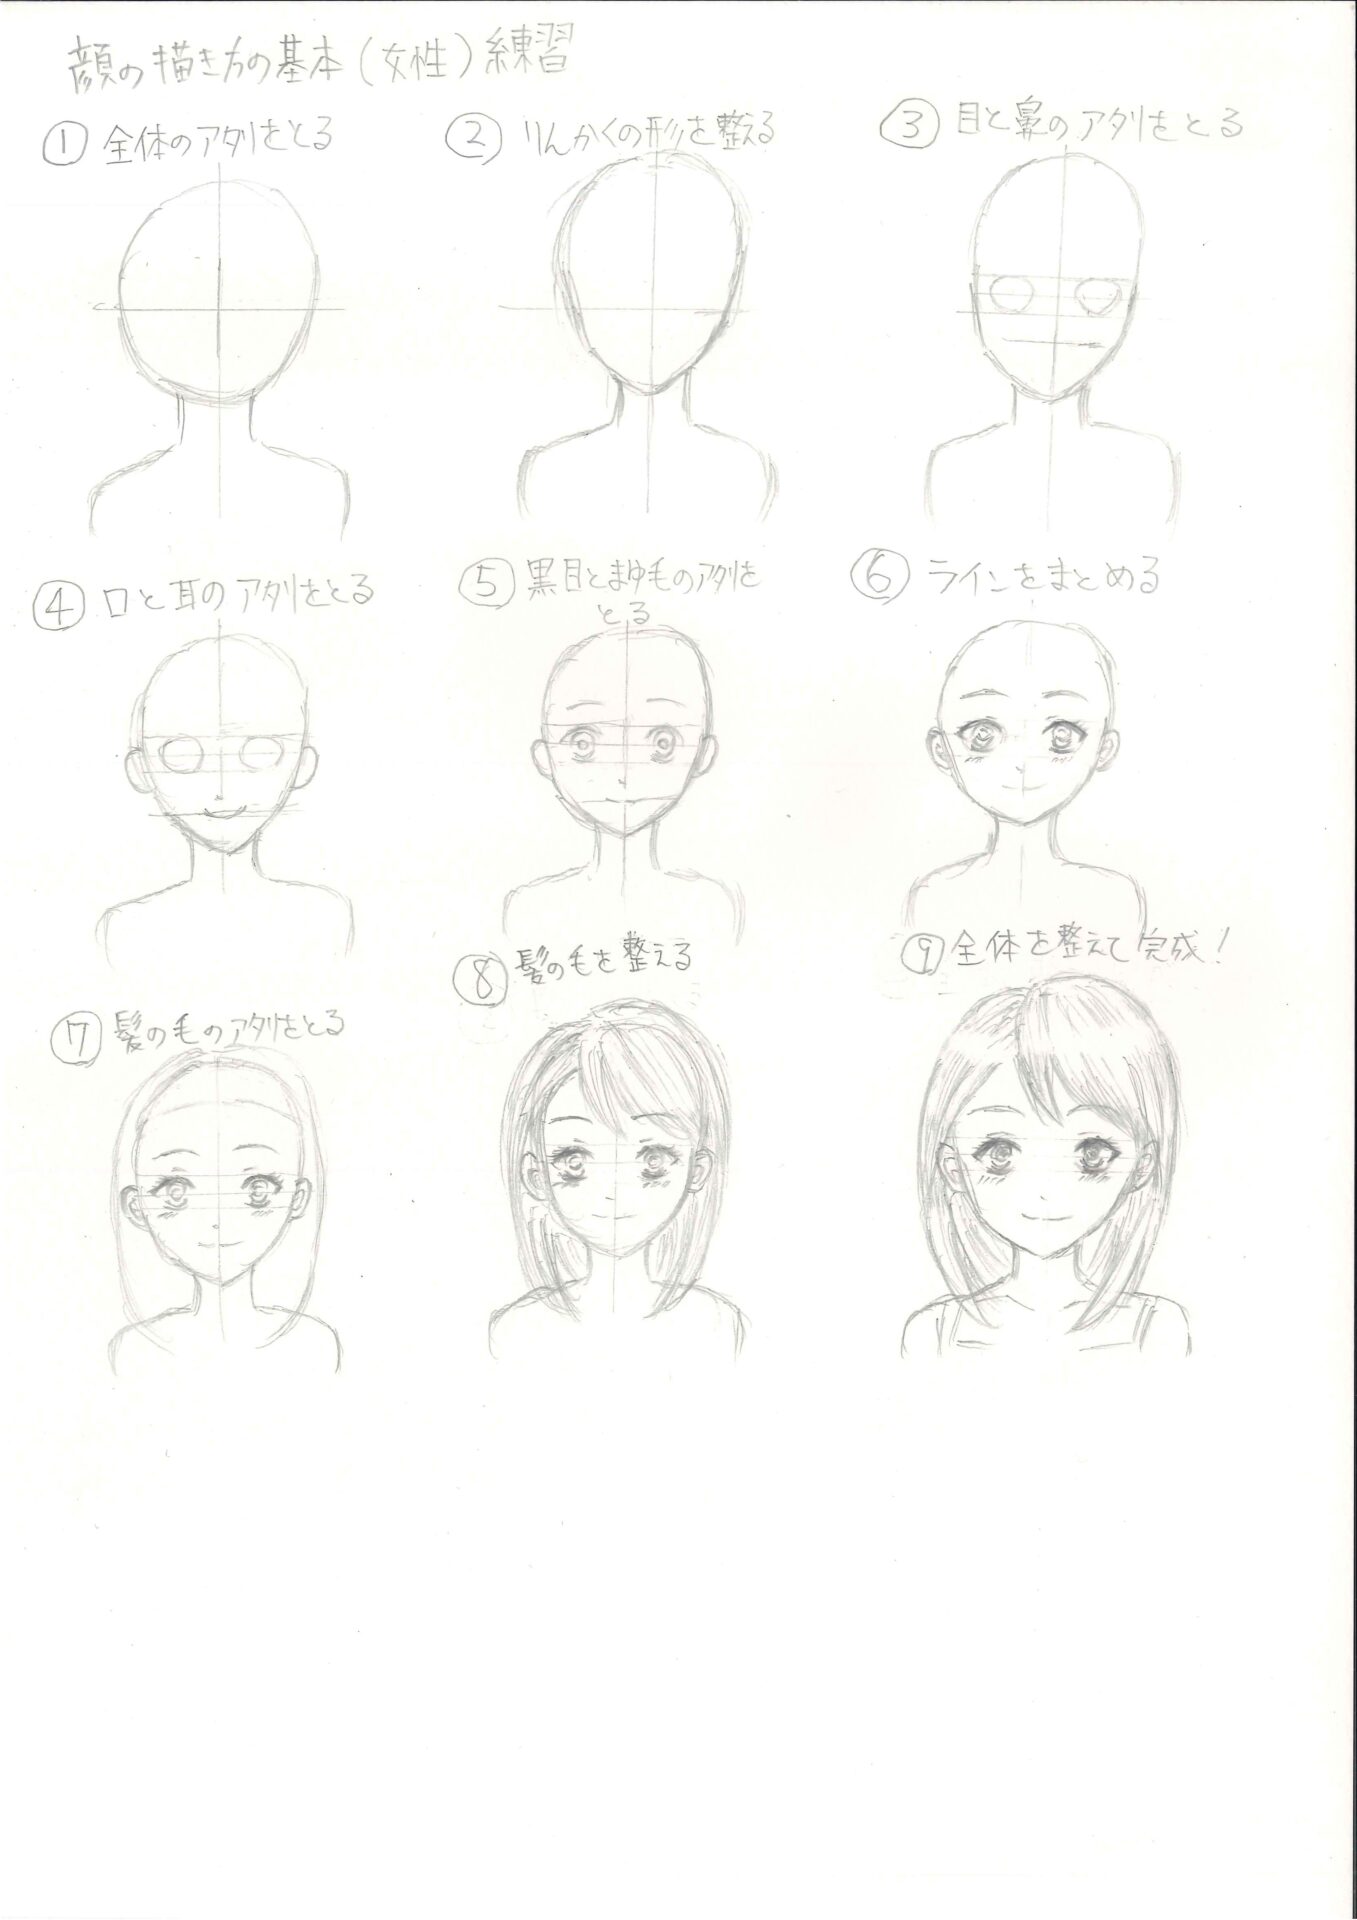 顔の描き方の基本(女性)練習
① 全体のアタリをとる
② りんかくの形を整える
③ 目と鼻のアタリをとる
④ 口と耳のアタリをとる
⑤ 黒目とまゆ毛のアタリを
とる
⑥ ラインをまとめる
⑦ 髪の毛のアタリをとる
⑧ 髪の毛を整える
⑨ 全体を整えて完成!